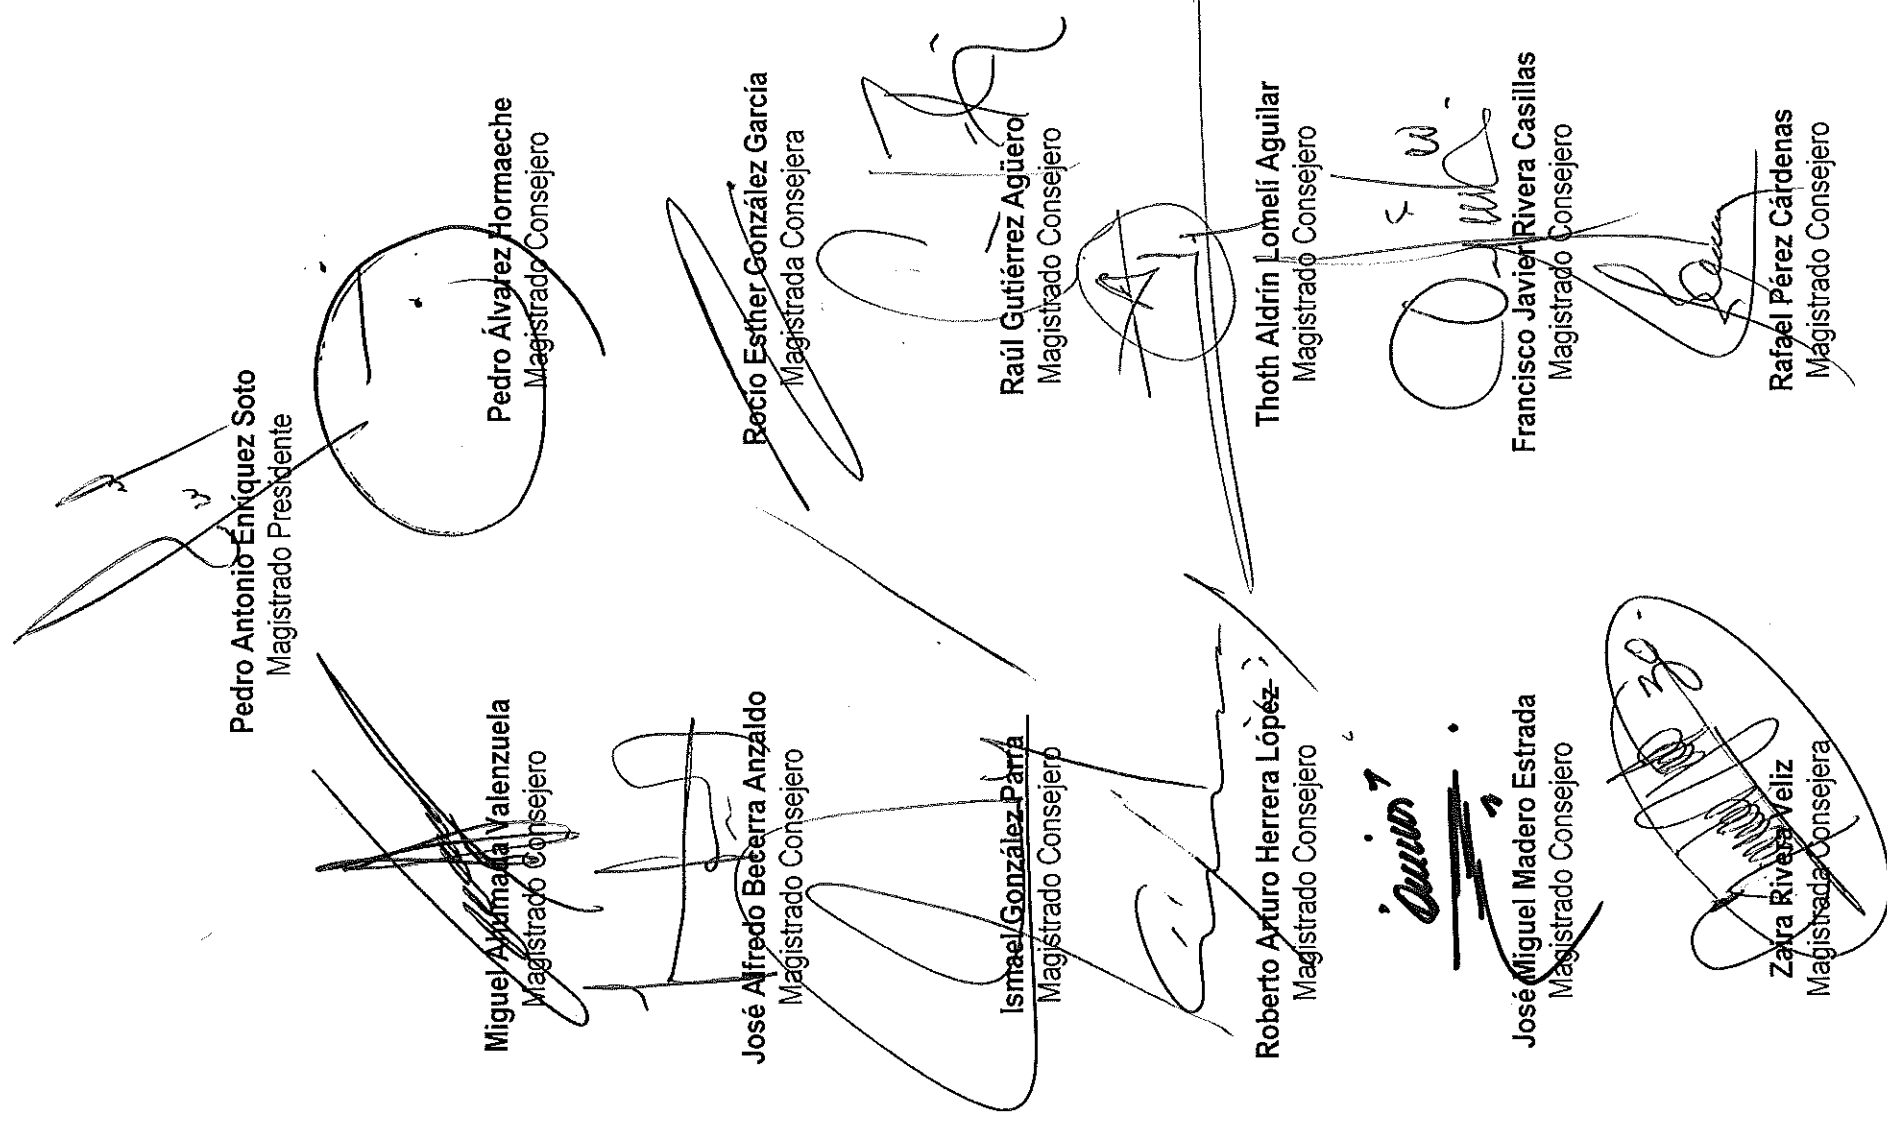 Pedro Antonio Enríquez Soto
Magistrado Presidente
Miguel Ahumada Valenzuela
Magistrado Consejero
Pedro Álvarez Hornaeche
Magistrado Consejero
José Alfredo Becerra Anzaldo
Magistrado Consejero
Rocío Esther González García
Magistrada Consejera
Ismael González Parra
Magistrado Consejero
Raúl Gutiérrez Agüero
Magistrado Consejero
Roberto Arturo Herrera López
Magistrado Consejero
Thoth Aldrín Lomelí Aguilar
Magistrado Consejero
José Miguel Madero Estrada
Magistrado Consejero
Francisco Javier Rivera Casillas
Magistrado Consejero
Zaira Rivera Veliz
Magistrada Consejera
Rafael Pérez Cárdenas
Magistrado Consejero